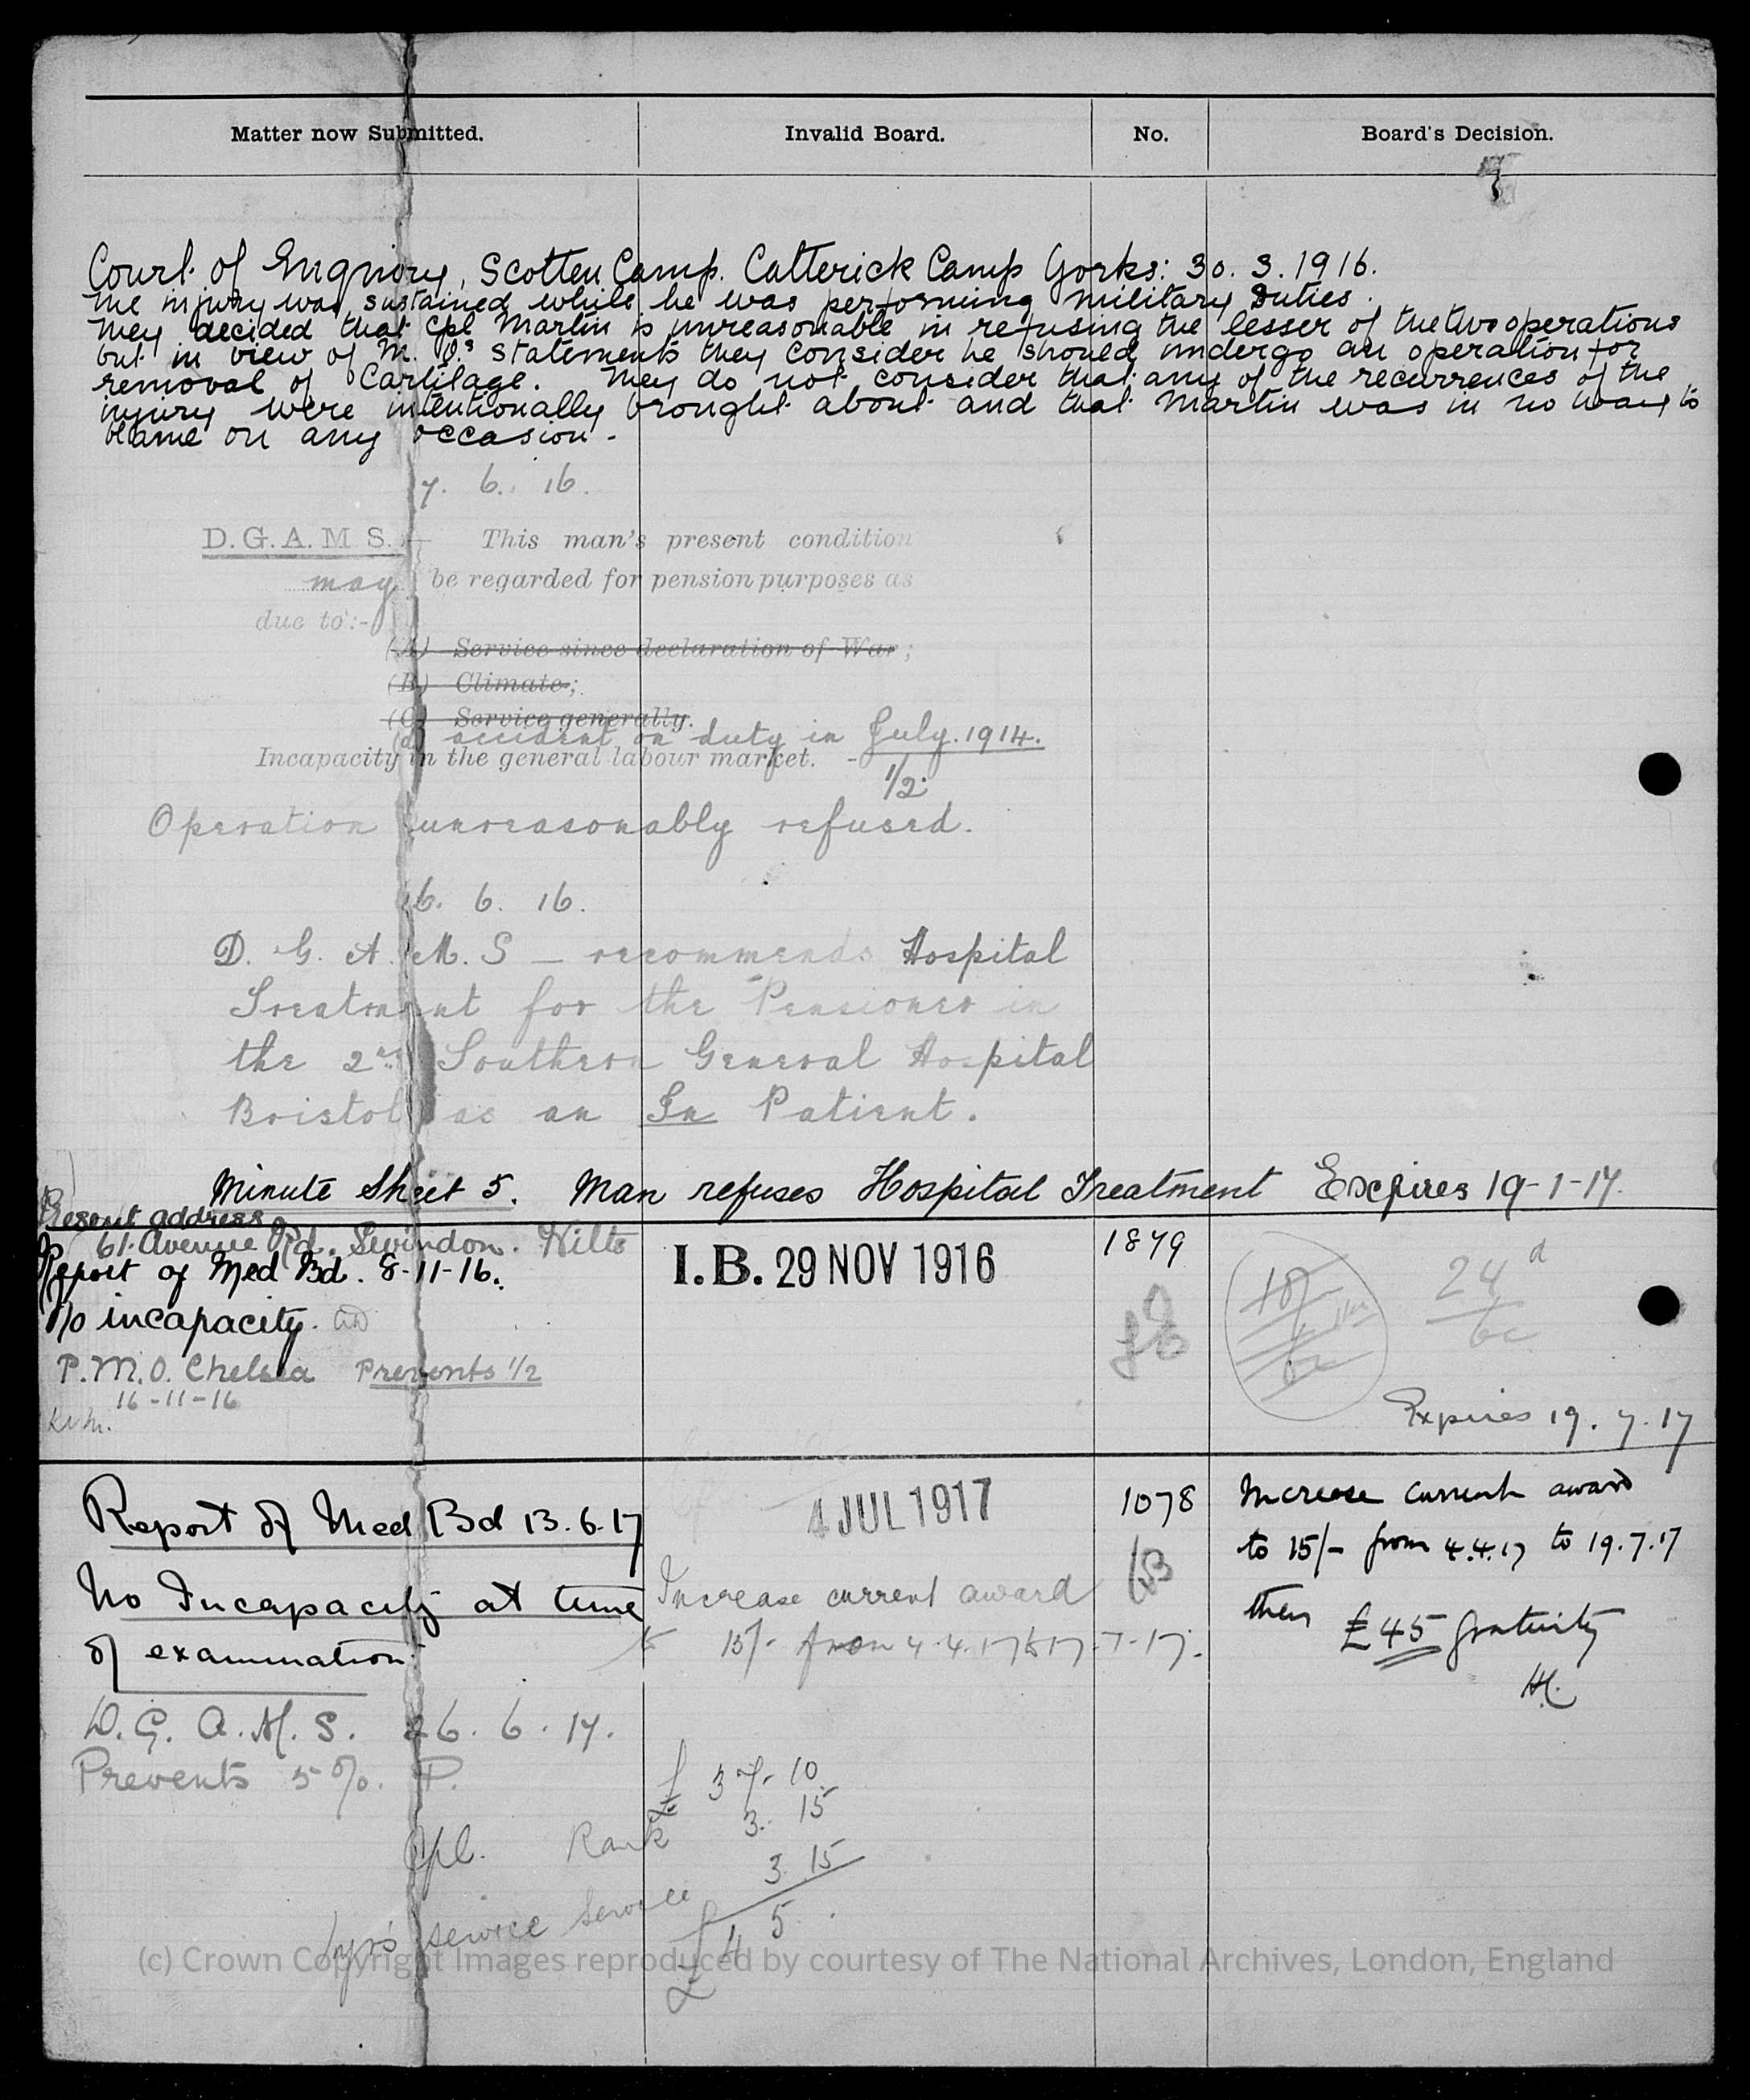 Matter now Submitted. Invalid Board. No. Board's Decision.
Court of Enquiry, Scotton Camp. Catterick Camp Yorks: 30. 3. 1916.
The injury was sustained while he was performing military duties.
They decided that Cpl Martin is unreasonable in refusing the lesser of the two operations
but in view of M. O.s statements they consider he should undergo an operation for
removal of Cartilage. They do not consider that any of the recurrences of the
injury were intentionally brought about and that Martin was in no way to
blame on any occasion.
7. 6. 16.
D.G.A.M S. This man's present condition
may be regarded for pension purposes as
due to:-
(A) Service since declaration of War;
(B) Climate;
(C) Service generally.
(d) accident on duty in July. 1914.
Incapacity in the general labour market. - 1/2
Operation unreasonably refused.
16. 6. 16.
D. G. A. M. S — recommends Hospital
Treatment for the Pensioner in
the 2nd Southern General Hospital
Bristol as an In Patient.
Minute Sheet 5. Man refuses Hospital Treatment Expires 19-1-17.
Present address
61. Avenue Rd. Swindon. Wilts
Report of Med Bd. 8-11-16.
No incapacity.
P.M.O. Chelsea Prevents 1/2
16-11-16
I.B. 29 NOV 1916
1879
24 d
6c
Expires 19. 7. 17
Report of Med Bd 13.6.17
No Incapacity at time
of examination.
D. G. A. M. S. 26. 6. 17.
Prevents 5%. P.
4 JUL 1917
Increase current award
to 15/- from 4.4.17 to 17-7-17.
£ 37-10
Cpl. Rank 3. 15
service service 3. 15
£ 45.
1078
Increase current award
to 15/- from 4.4.17 to 19.7.17
then £45 gratuity
(c) Crown Copyright Images reproduced by courtesy of The National Archives, London, England